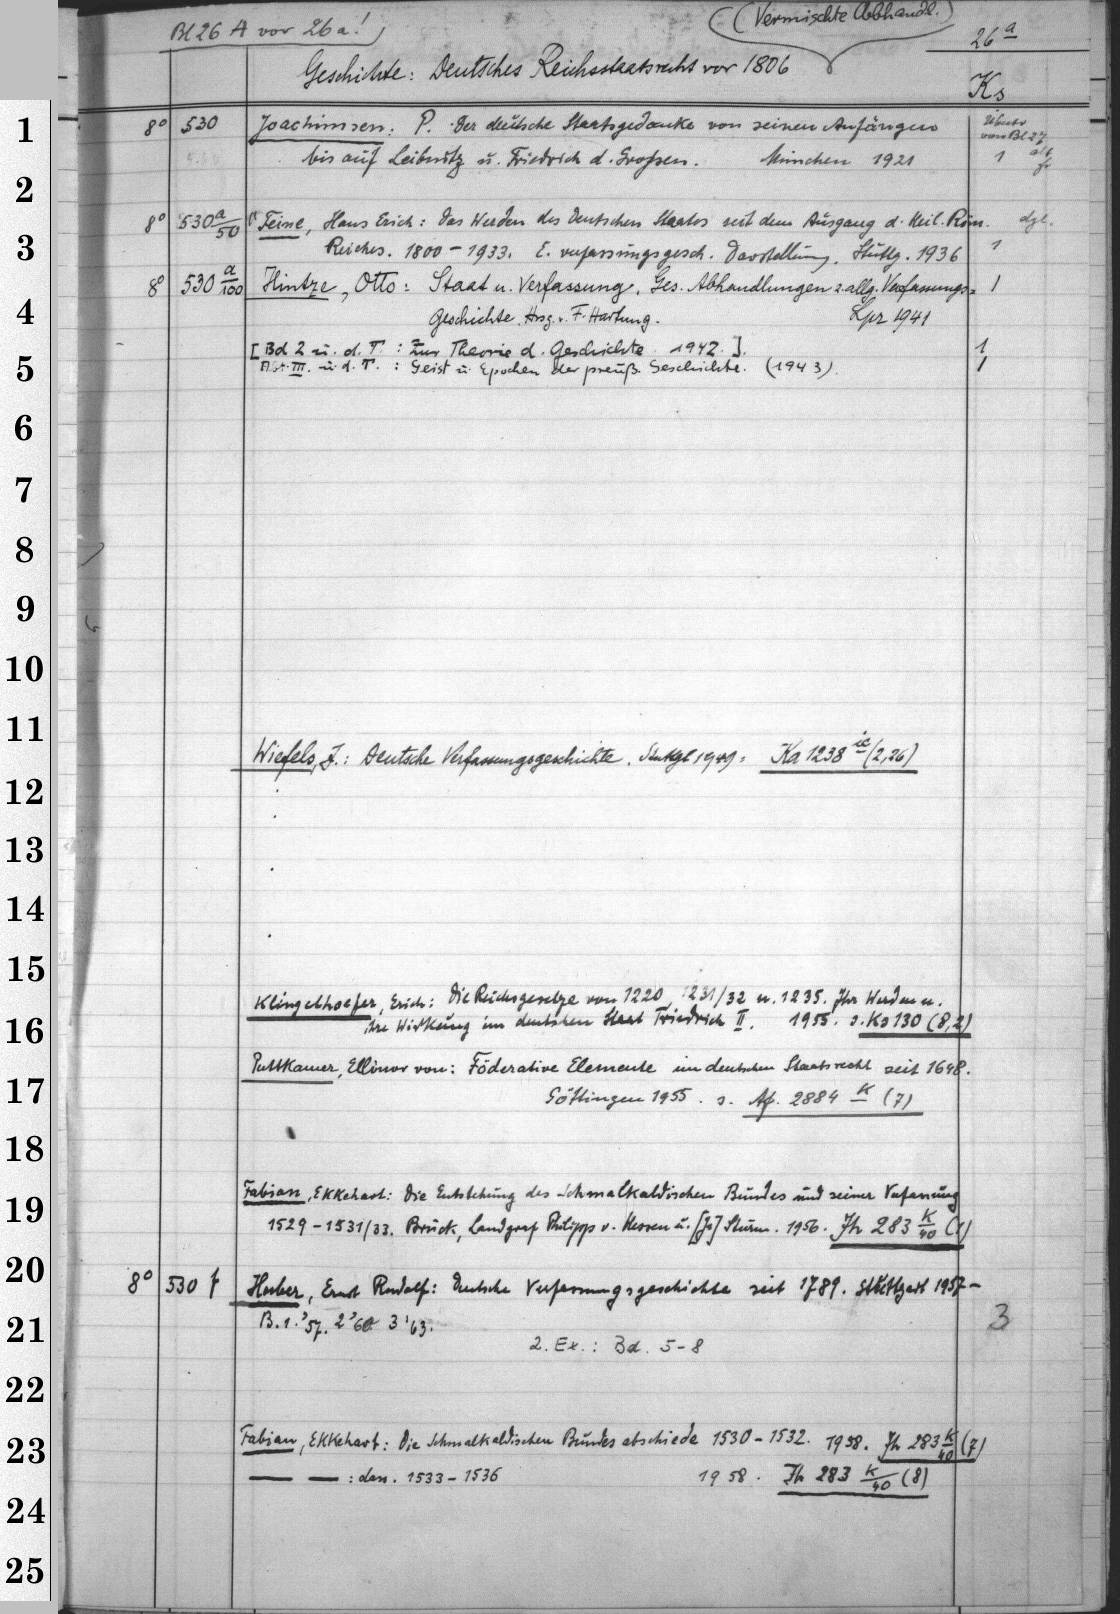 (Vermischte Abhandl.)
Bl 26 A vor 26a!
26 a
Geschichte: Deutsches Reichsstaatsrecht vor 1806
Ks
1
8° 530 Joachimsen: P. Der deutsche Staatsgedanke von seinen Anfängen
von Bl 27
bis auf Leibnitz u. Friedrich d. Großen. München 1921 1
2
8° 530 a/50 Feine, Hans Erich: Das Werden des Deutschen Staates seit dem Ausgang d. Heil. Röm. dgl.
3
Reiches. 1800 – 1933. E. verfassungsgesch. Darstellung. Stuttg. 1936 1
8° 530 a/100 Hintze, Otto: Staat u. Verfassung. Ges. Abhandlungen z. allg. Verfassungs= 1
4
geschichte. Hrsg. v. F. Hartung. Lpz 1941
[Bd 2 u. d. T. : Zur Theorie d. Geschichte 1942]. 1
5
Bd. III. u. d. T. : Geist u Epochen der preuß. Geschichte. (1943). 1
6
7
8
9
10
11
Wiefels, J.: Deutsche Verfassungsgeschichte. Stuttgt 1949 = Ka 1238 ic (2,26)
12
13
14
15
Klingelhoefer, Erich: Die Reichsgesetze von 1220, 1231/32 u. 1235. Ihr Werden u.
16
ihre Wirkung im deutschen Staat Friedrich II. 1955. s. Ks 130 (8,2)
Puttkamer, Ellinor von: Föderative Elemente im deutschen Staatsrecht seit 1648.
17
Göttingen 1955. s. Af. 2884 K (7)
18
Fabian, Ekkehart: Die Entstehung des Schmalkaldischen Bundes und seiner Verfassung
19
1529 – 1531/33. Brück, Landgraf Philipp v. Hessen u. [J.] Sturm. 1956. Jh 283 K/40 (1)
20
8° 530 f Huber, Ernst Rudolf: Deutsche Verfassungsgeschichte seit 1789. Stuttgart 1957 –
21
B. 1.'57. 2'60 3'63. 3
2. Ex.: Bd. 5-8
22
23
Fabian, Ekkehart: Die Schmalkaldischen Bundesabschiede 1530 – 1532. 1958. Jh 283 K/40 (7)
— — : dass. 1533 – 1536 1958. Jh 283 K/40 (8)
24
25